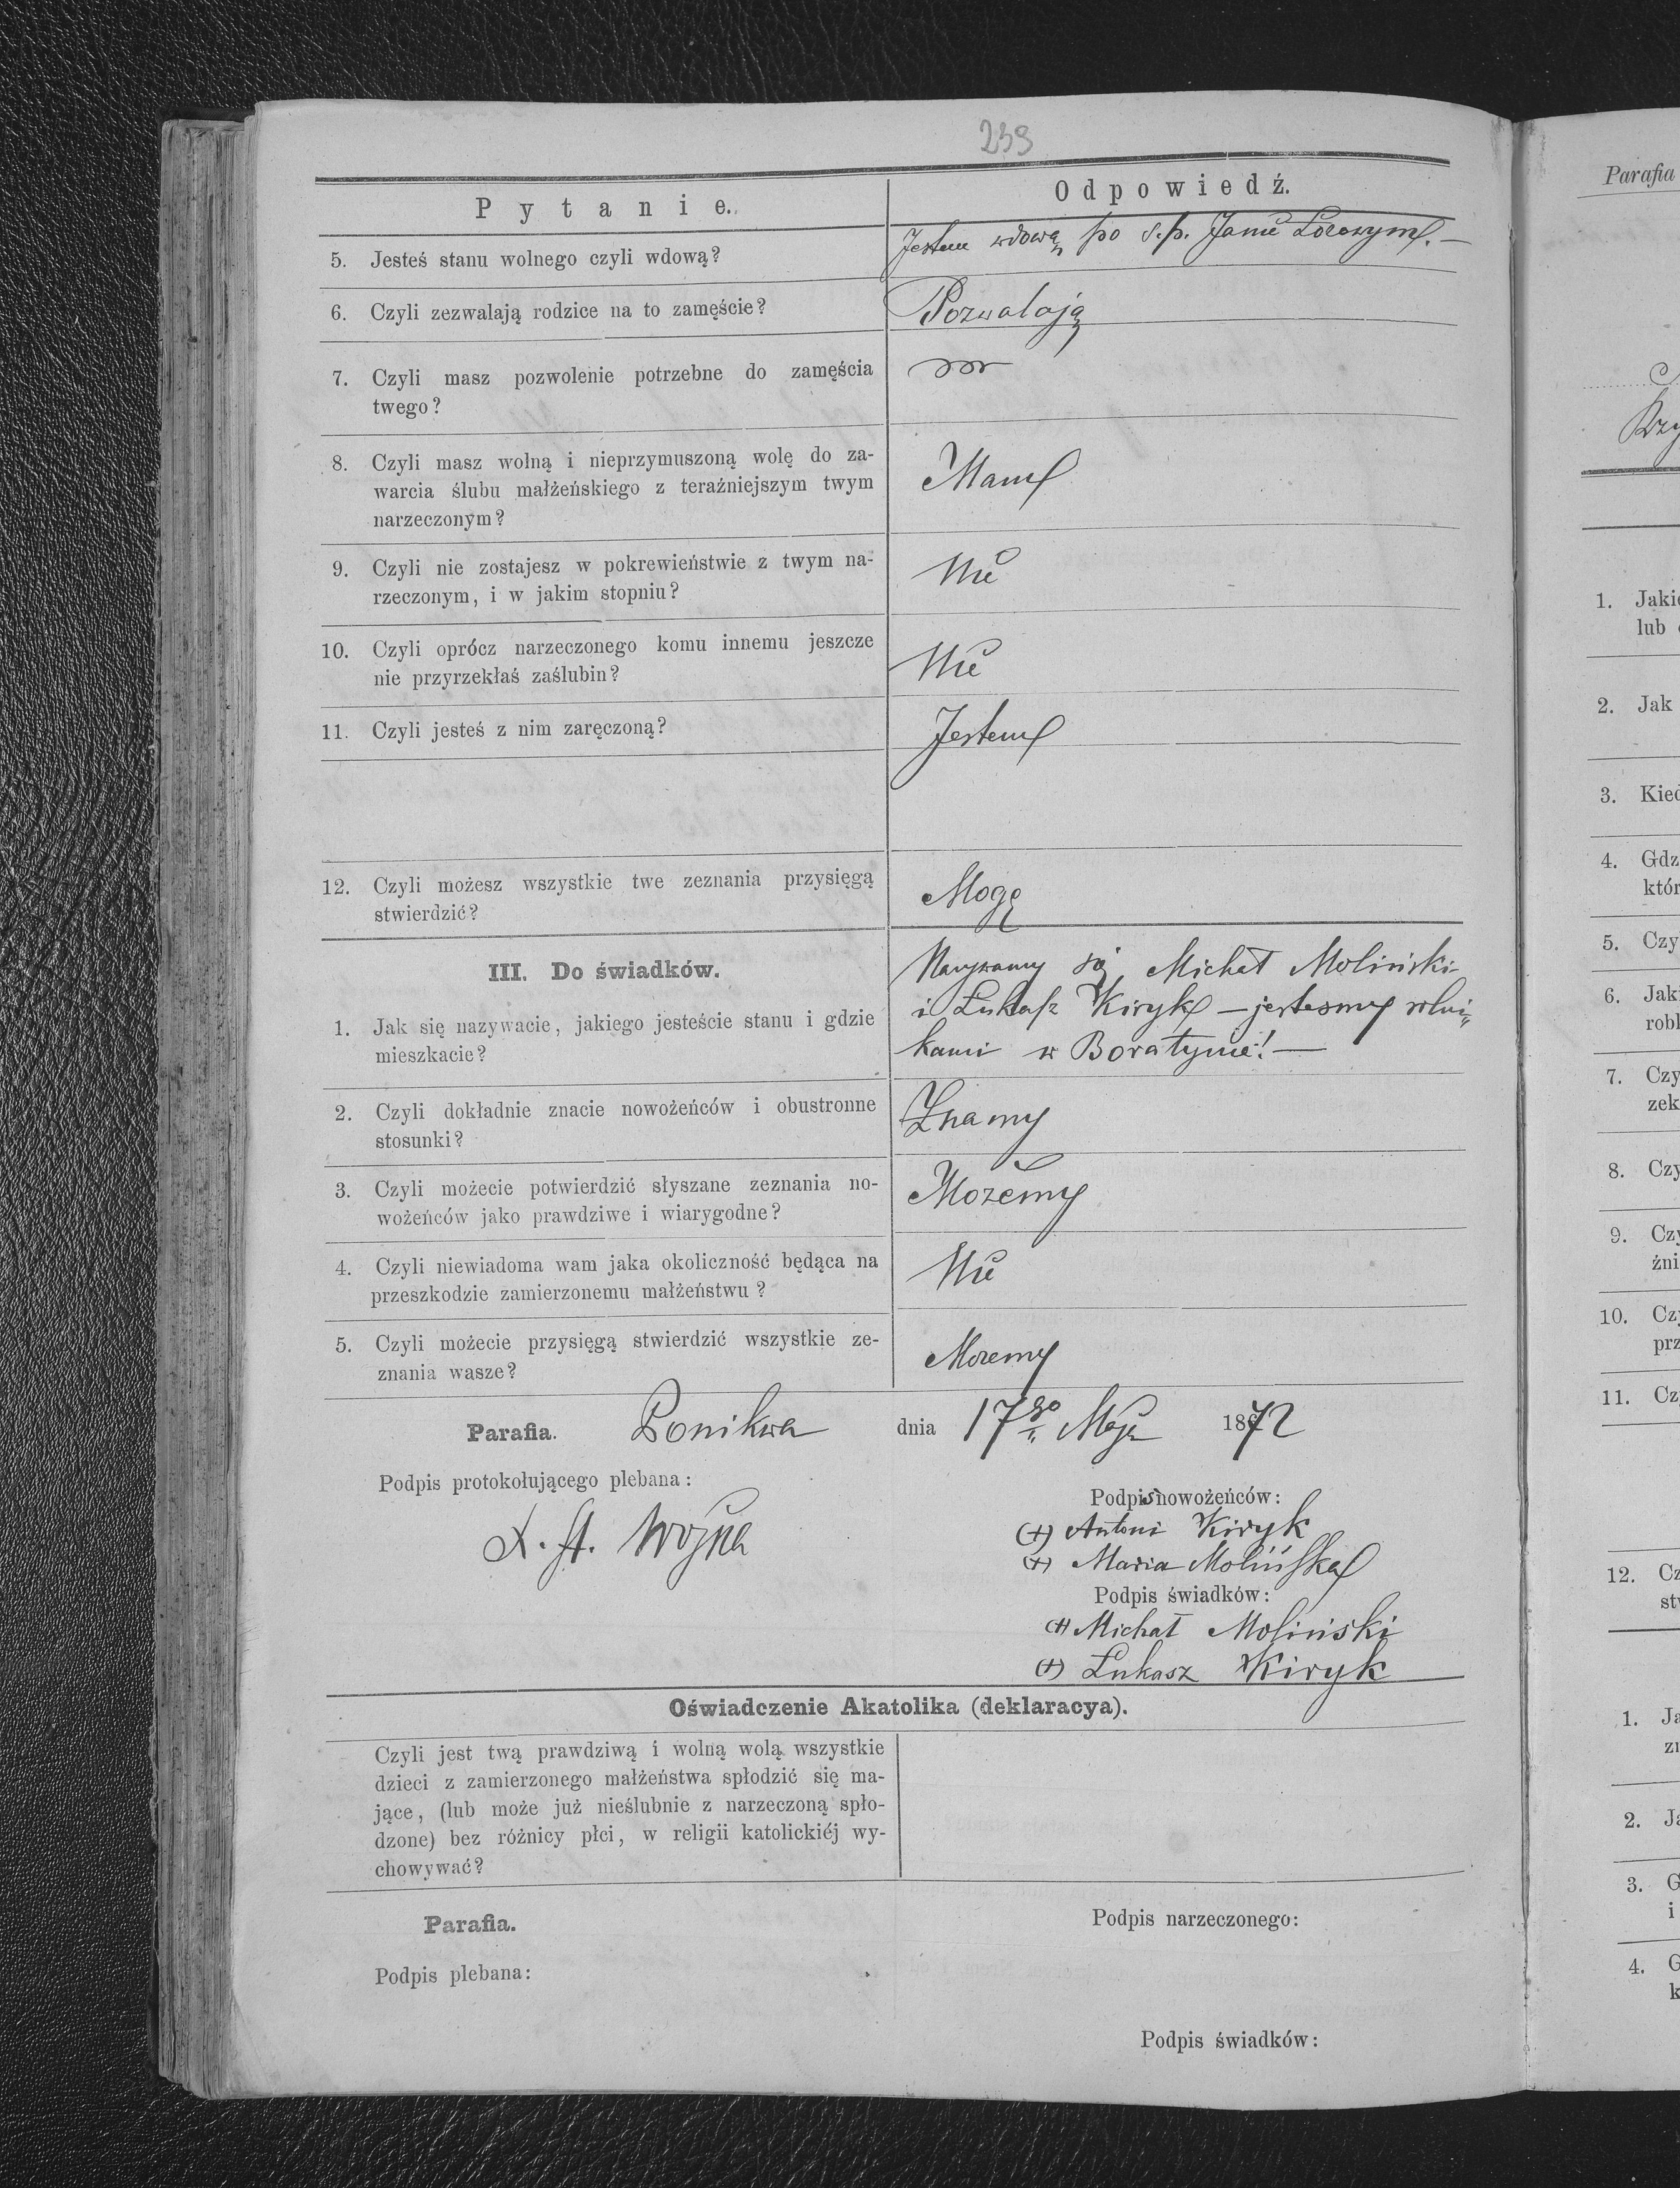 239
Pytanie.
Odpowiedź.
5. Jesteś stanu wolnego czyli wdową?
Jestem wdową po ś.p. Janie
6. Czyli zezwalają rodzice na to zamęście?
Pozwalają
7. Czyli masz pozwolenie potrzebne do zamęścia
twego?
8. Czyli masz wolną i nieprzymuszoną wolę do za-
warcia ślubu małżeńskiego z teraźniejszym twym
narzeczonym?
Mam
9. Czyli nie zostajesz w pokrewieństwie z twym na-
rzeczonym, i w jakim stopniu?
Nie
10. Czyli oprócz narzeczonego komu innemu jeszcze
nie przyrzekłaś zaślubin?
Nie
11. Czyli jesteś z nim zaręczoną?
Jestem
12. Czyli możesz wszystkie twe zeznania przysięgą
stwierdzić?
Mogę
III. Do świadków.
1. Jak się nazywacie, jakiego jesteście stanu i gdzie
mieszkacie?
Nazywamy się Michał Moliński
i Łukasz Kiryk – jestesmy rolni„
kami w Boratynie! —
2. Czyli dokładnie znacie nowożeńców i obustronne
stosunki?
Znamy
3. Czyli możecie potwierdzić słyszane zeznania no-
wożeńców jako prawdziwe i wiarygodne?
Możemy
4. Czyli niewiadoma wam jaka okoliczność będąca na
przeszkodzie zamierzonemu małżeństwu?
Nie
5. Czyli możecie przysięgą stwierdzić wszystkie ze-
znania wasze?
Mozemy
Parafia. Ponikwa dnia 17go Maja 1872
Podpis protokołującego plebana:
X. St. Wojna
Podpis nowożeńców:
(+) Antoni Kiryk
(+) Maria Molińska
Podpis świadków:
(+) Michał Moliński
(+) Łukasz Kiryk
Oświadczenie Akatolika (deklaracya).
Czyli jest twą prawdziwą i wolną wolą wszystkie
dzieci z zamierzonego małżeństwa spłodzić się ma-
jące, (lub może już nieślubnie z narzeczoną spło-
dzone) bez różnicy płci, w religii katolickiéj wy-
chowywać?
Parafia.
Podpis narzeczonego:
Podpis plebana:
Podpis świadków:
Parafia
1. Jakie
lub
2. Jak
3. Kied
4. Gdz
któr
5. Czy
6. Jak
robl
7. Czy
zek
8. Czy
9. Czy
źni
10. Czy
prz
11. Cz
12. Cz
stw
1. Ja
zn
2. Ja
3. G
i
4. G
k